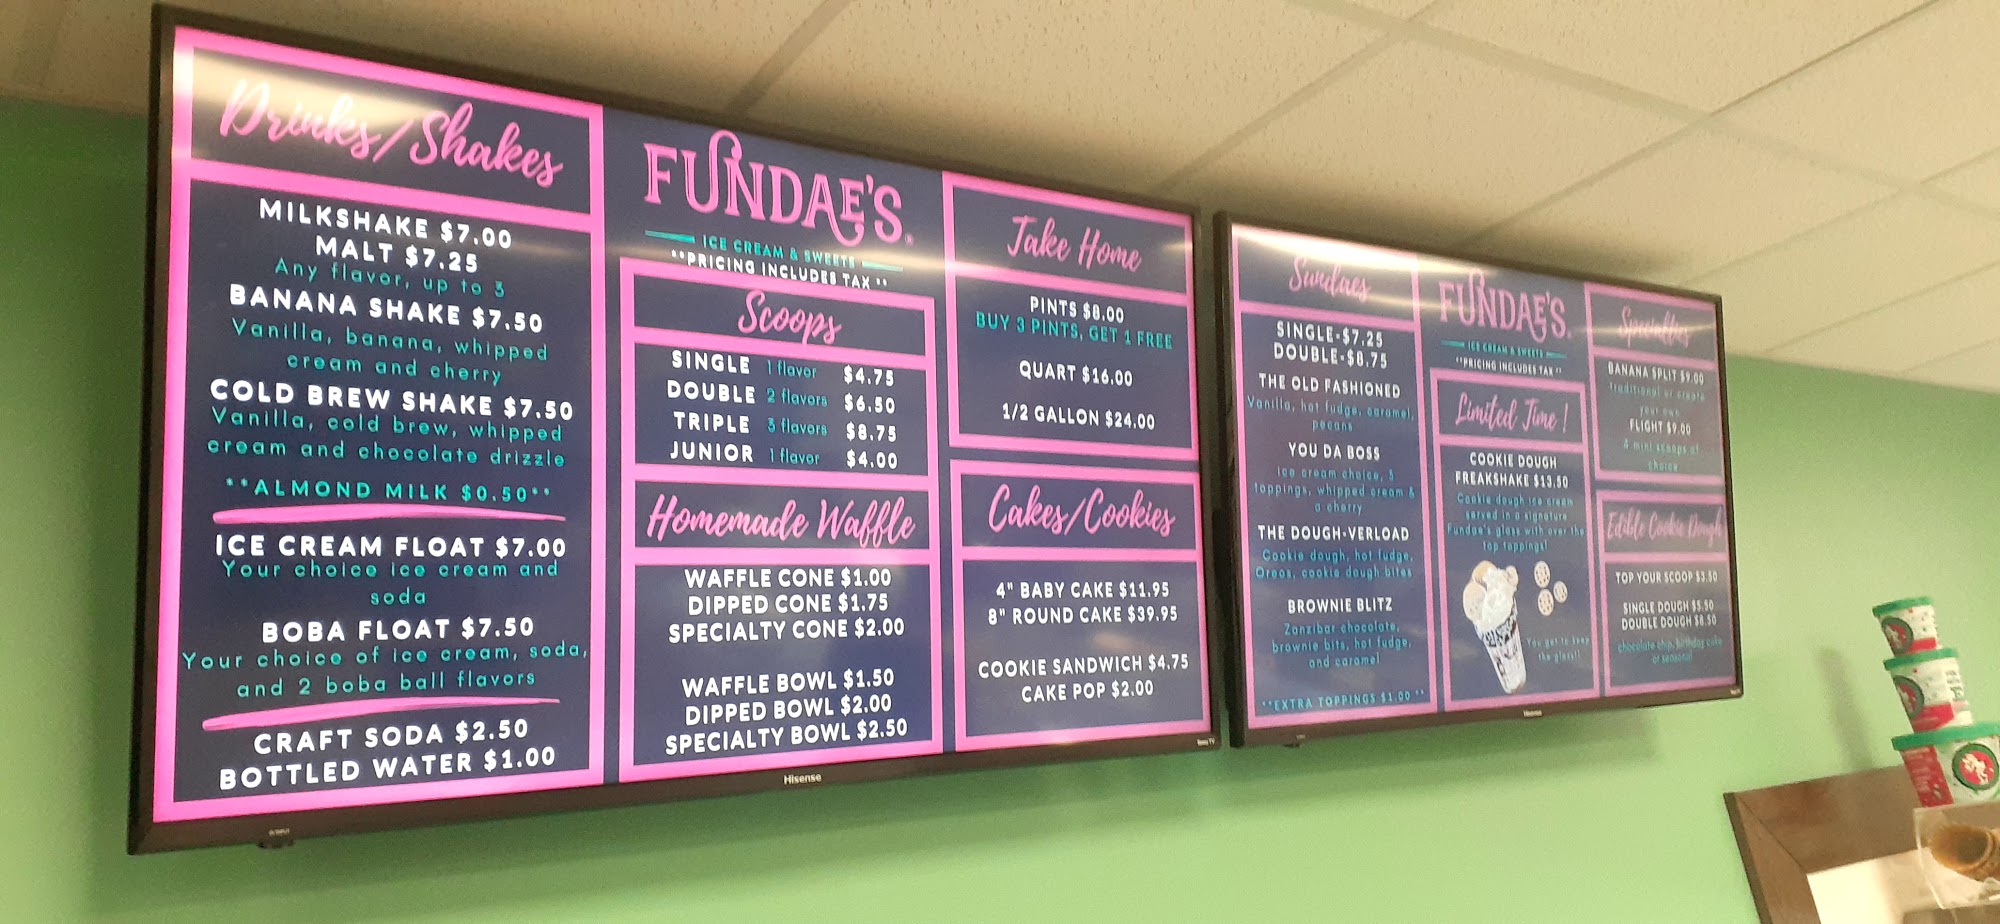 Drinks/Shakes
MILKSHAKE $7.00
MALT $7.25
Any flavor, up to 3
BANANA SHAKE $7.50
Vanilla, banana, whipped
cream and cherry
COLD BREW SHAKE $7.50
Vanilla, cold brew, whipped
cream and chocolate drizzle
**ALMOND MILK $0.50**
ICE CREAM FLOAT $7.00
Your choice ice cream and
soda
BOBA FLOAT $7.50
Your choice of ice cream, soda,
and 2 boba ball flavors
CRAFT SODA $2.50
BOTTLED WATER $1.00
FUNDAE'S®
ICE CREAM & SWEETS
**PRICING INCLUDES TAX **
Scoops
SINGLE 1 flavor $4.75
DOUBLE 2 flavors $6.50
TRIPLE 3 flavors $8.75
JUNIOR 1 flavor $4.00
Homemade Waffle
WAFFLE CONE $1.00
DIPPED CONE $1.75
SPECIALTY CONE $2.00
WAFFLE BOWL $1.50
DIPPED BOWL $2.00
SPECIALTY BOWL $2.50
Take Home
PINTS $8.00
BUY 3 PINTS, GET 1 FREE
QUART $16.00
1/2 GALLON $24.00
Cakes/Cookies
4" BABY CAKE $11.95
8" ROUND CAKE $39.95
COOKIE SANDWICH $4.75
CAKE POP $2.00
Hisense
Roku TV
Sundaes
SINGLE-$7.25
DOUBLE-$8.75
THE OLD FASHIONED
Vanilla, hot fudge, caramel,
pecans
YOU DA BOSS
Ice cream choice, 3
toppings, whipped cream &
a cherry
THE DOUGH-VERLOAD
Cookie dough, hot fudge,
Oreos, cookie dough bites
BROWNIE BLITZ
Zanzibar chocolate,
brownie bits, hot fudge,
and caramel
**EXTRA TOPPINGS $1.00 **
FUNDAE'S®
ICE CREAM & SWEETS
**PRICING INCLUDES TAX **
Limited Time!
COOKIE DOUGH
FREAKSHAKE $13.50
Cookie dough ice cream
served in a signature
Fundae's glass with over the
top toppings!
You get to keep
the glass!!
Specialties
BANANA SPLIT $9.00
traditional or create
your own
FLIGHT $9.00
4 mini scoops of
choice
Edible Cookie Dough
TOP YOUR SCOOP $3.50
SINGLE DOUGH $5.50
DOUBLE DOUGH $8.50
chocolate chip, birthday cake
or seasonal
Hisense